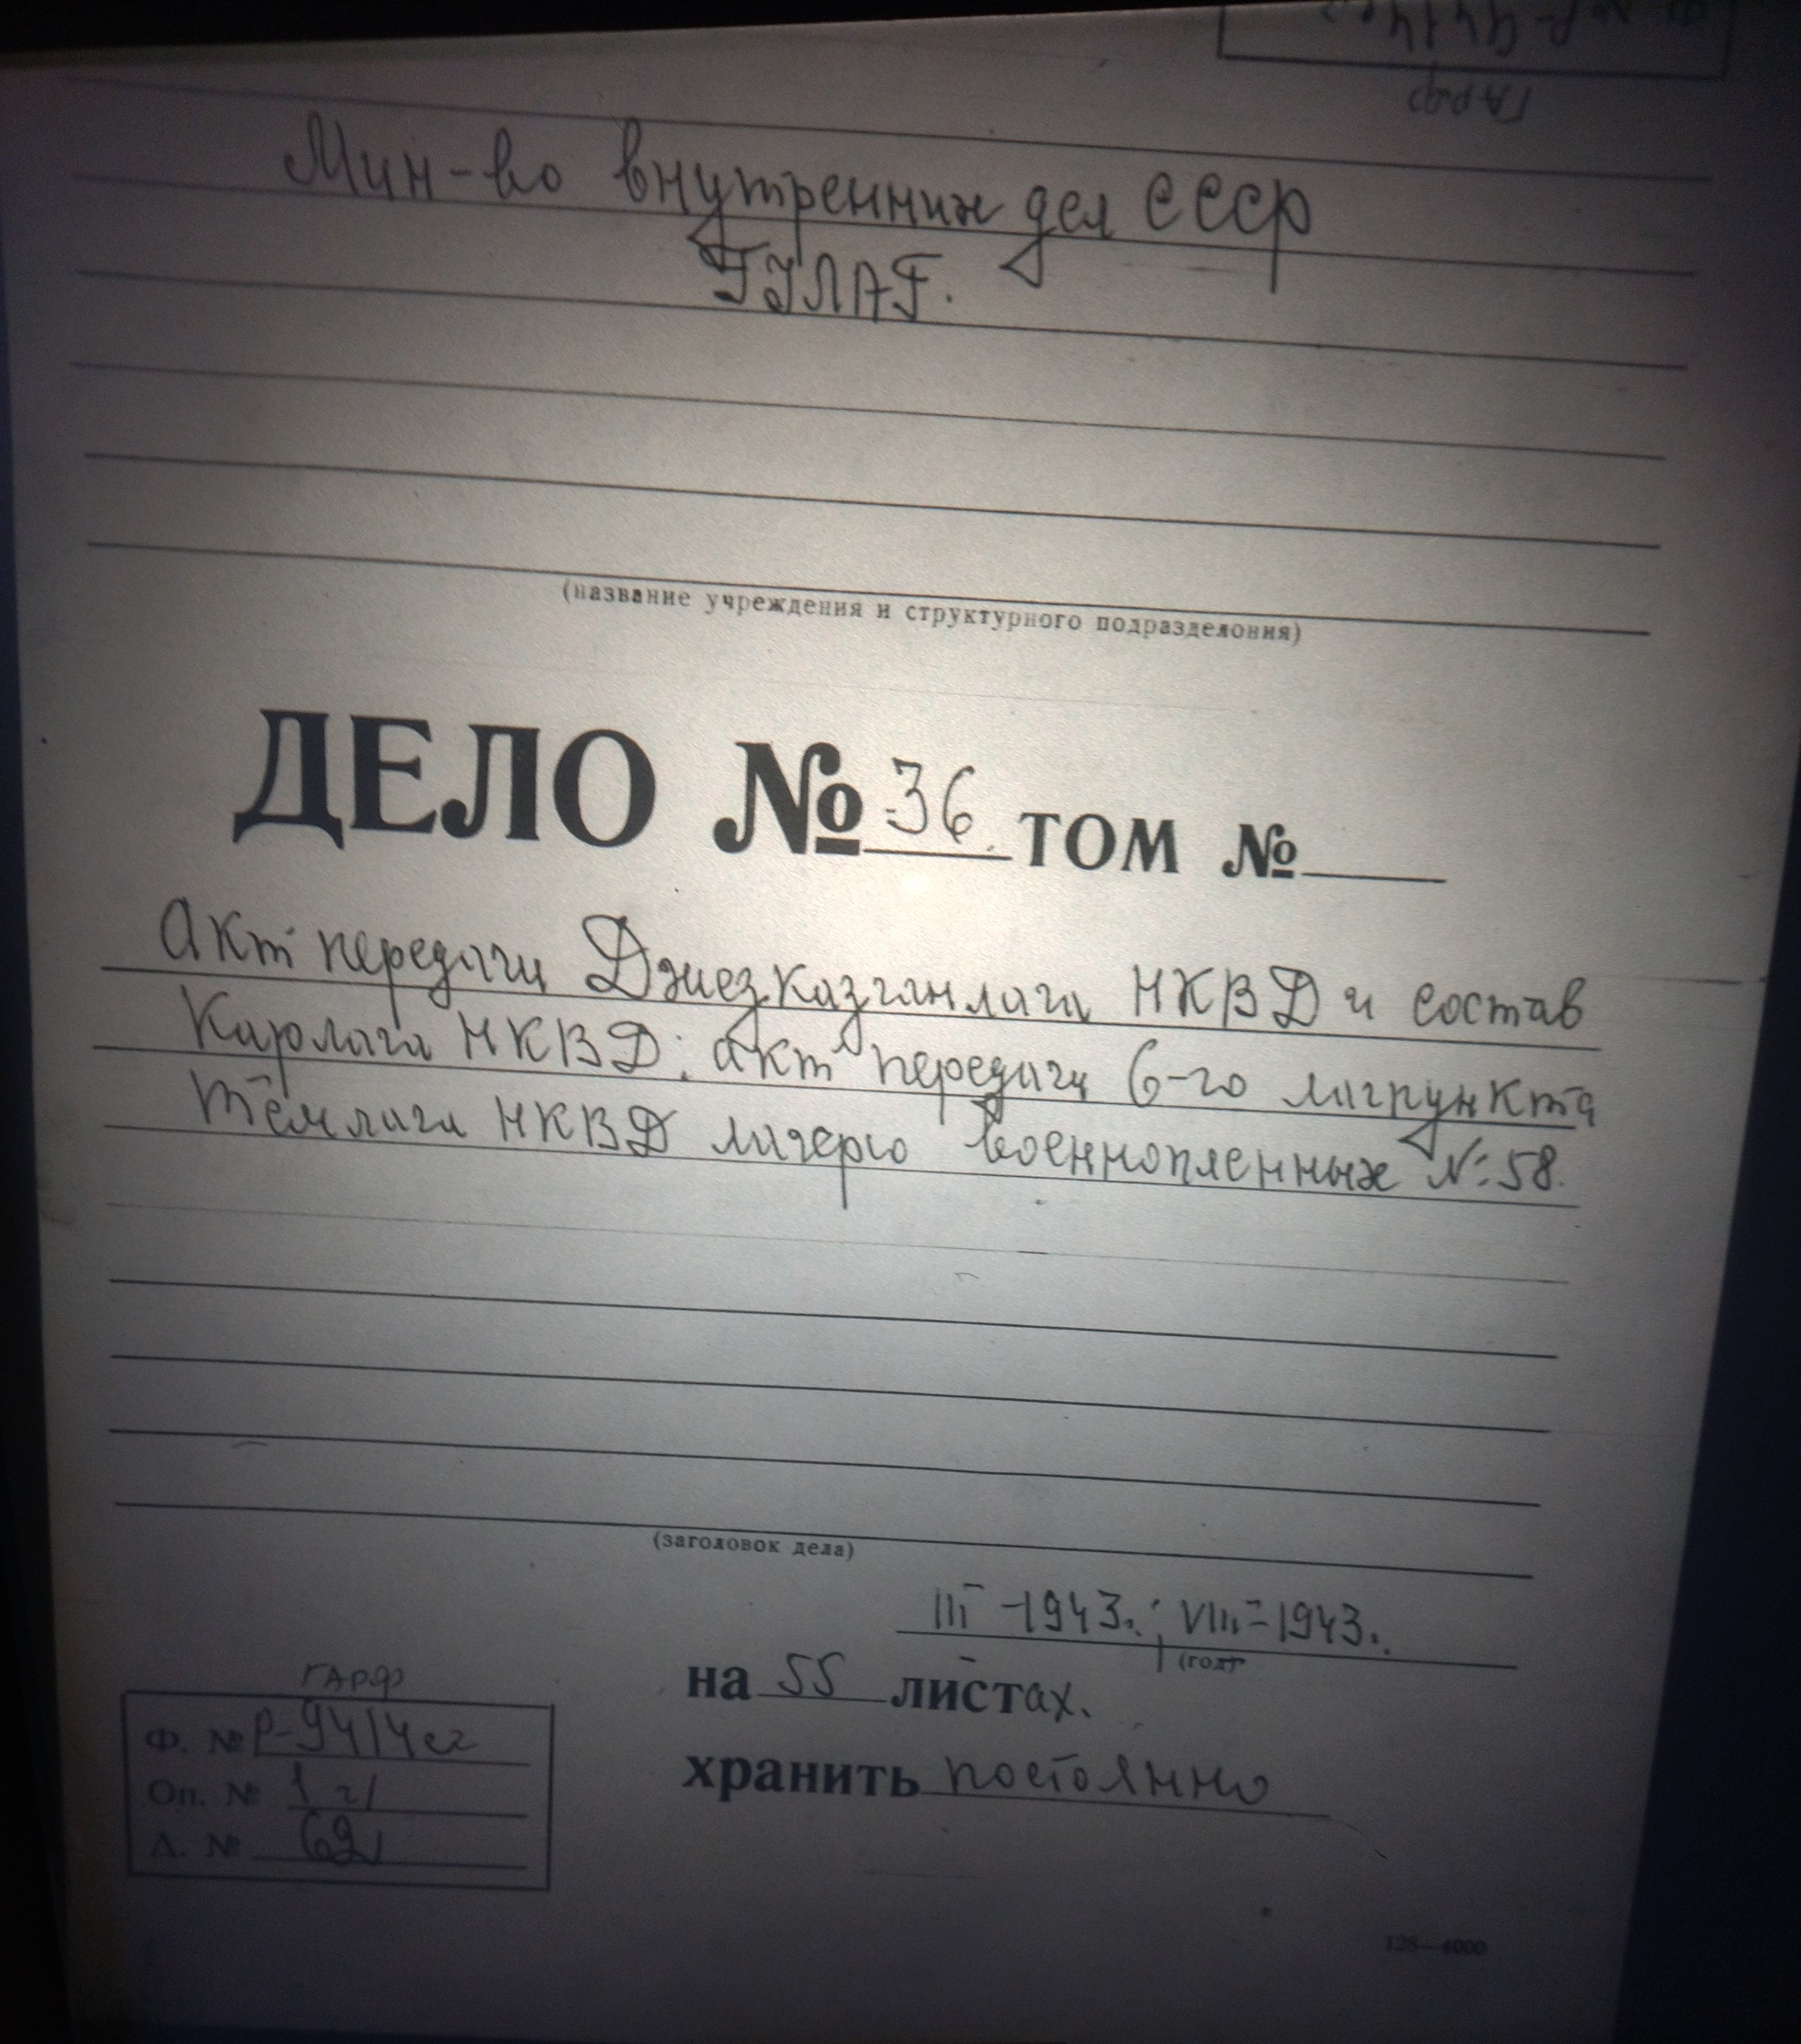 Мин-во внутренних дел СССР
ГУЛАГ.
(название учреждения и структурного подразделения)
ДЕЛО № 36 ТОМ №
Акт передачи Джезказганлага НКВД и состав
Карлага НКВД; акт передачи 6-го лагпункта
Темлага НКВД лагерю военнопленных №58.
(заголовок дела)
III-1943г.; VIII-1943г.
(год)
на 55 листах.
хранить постоянно
ГАРФ
Ф. № Р-9414
Оп. № 1
Д. №
128—4000
ГАРФ